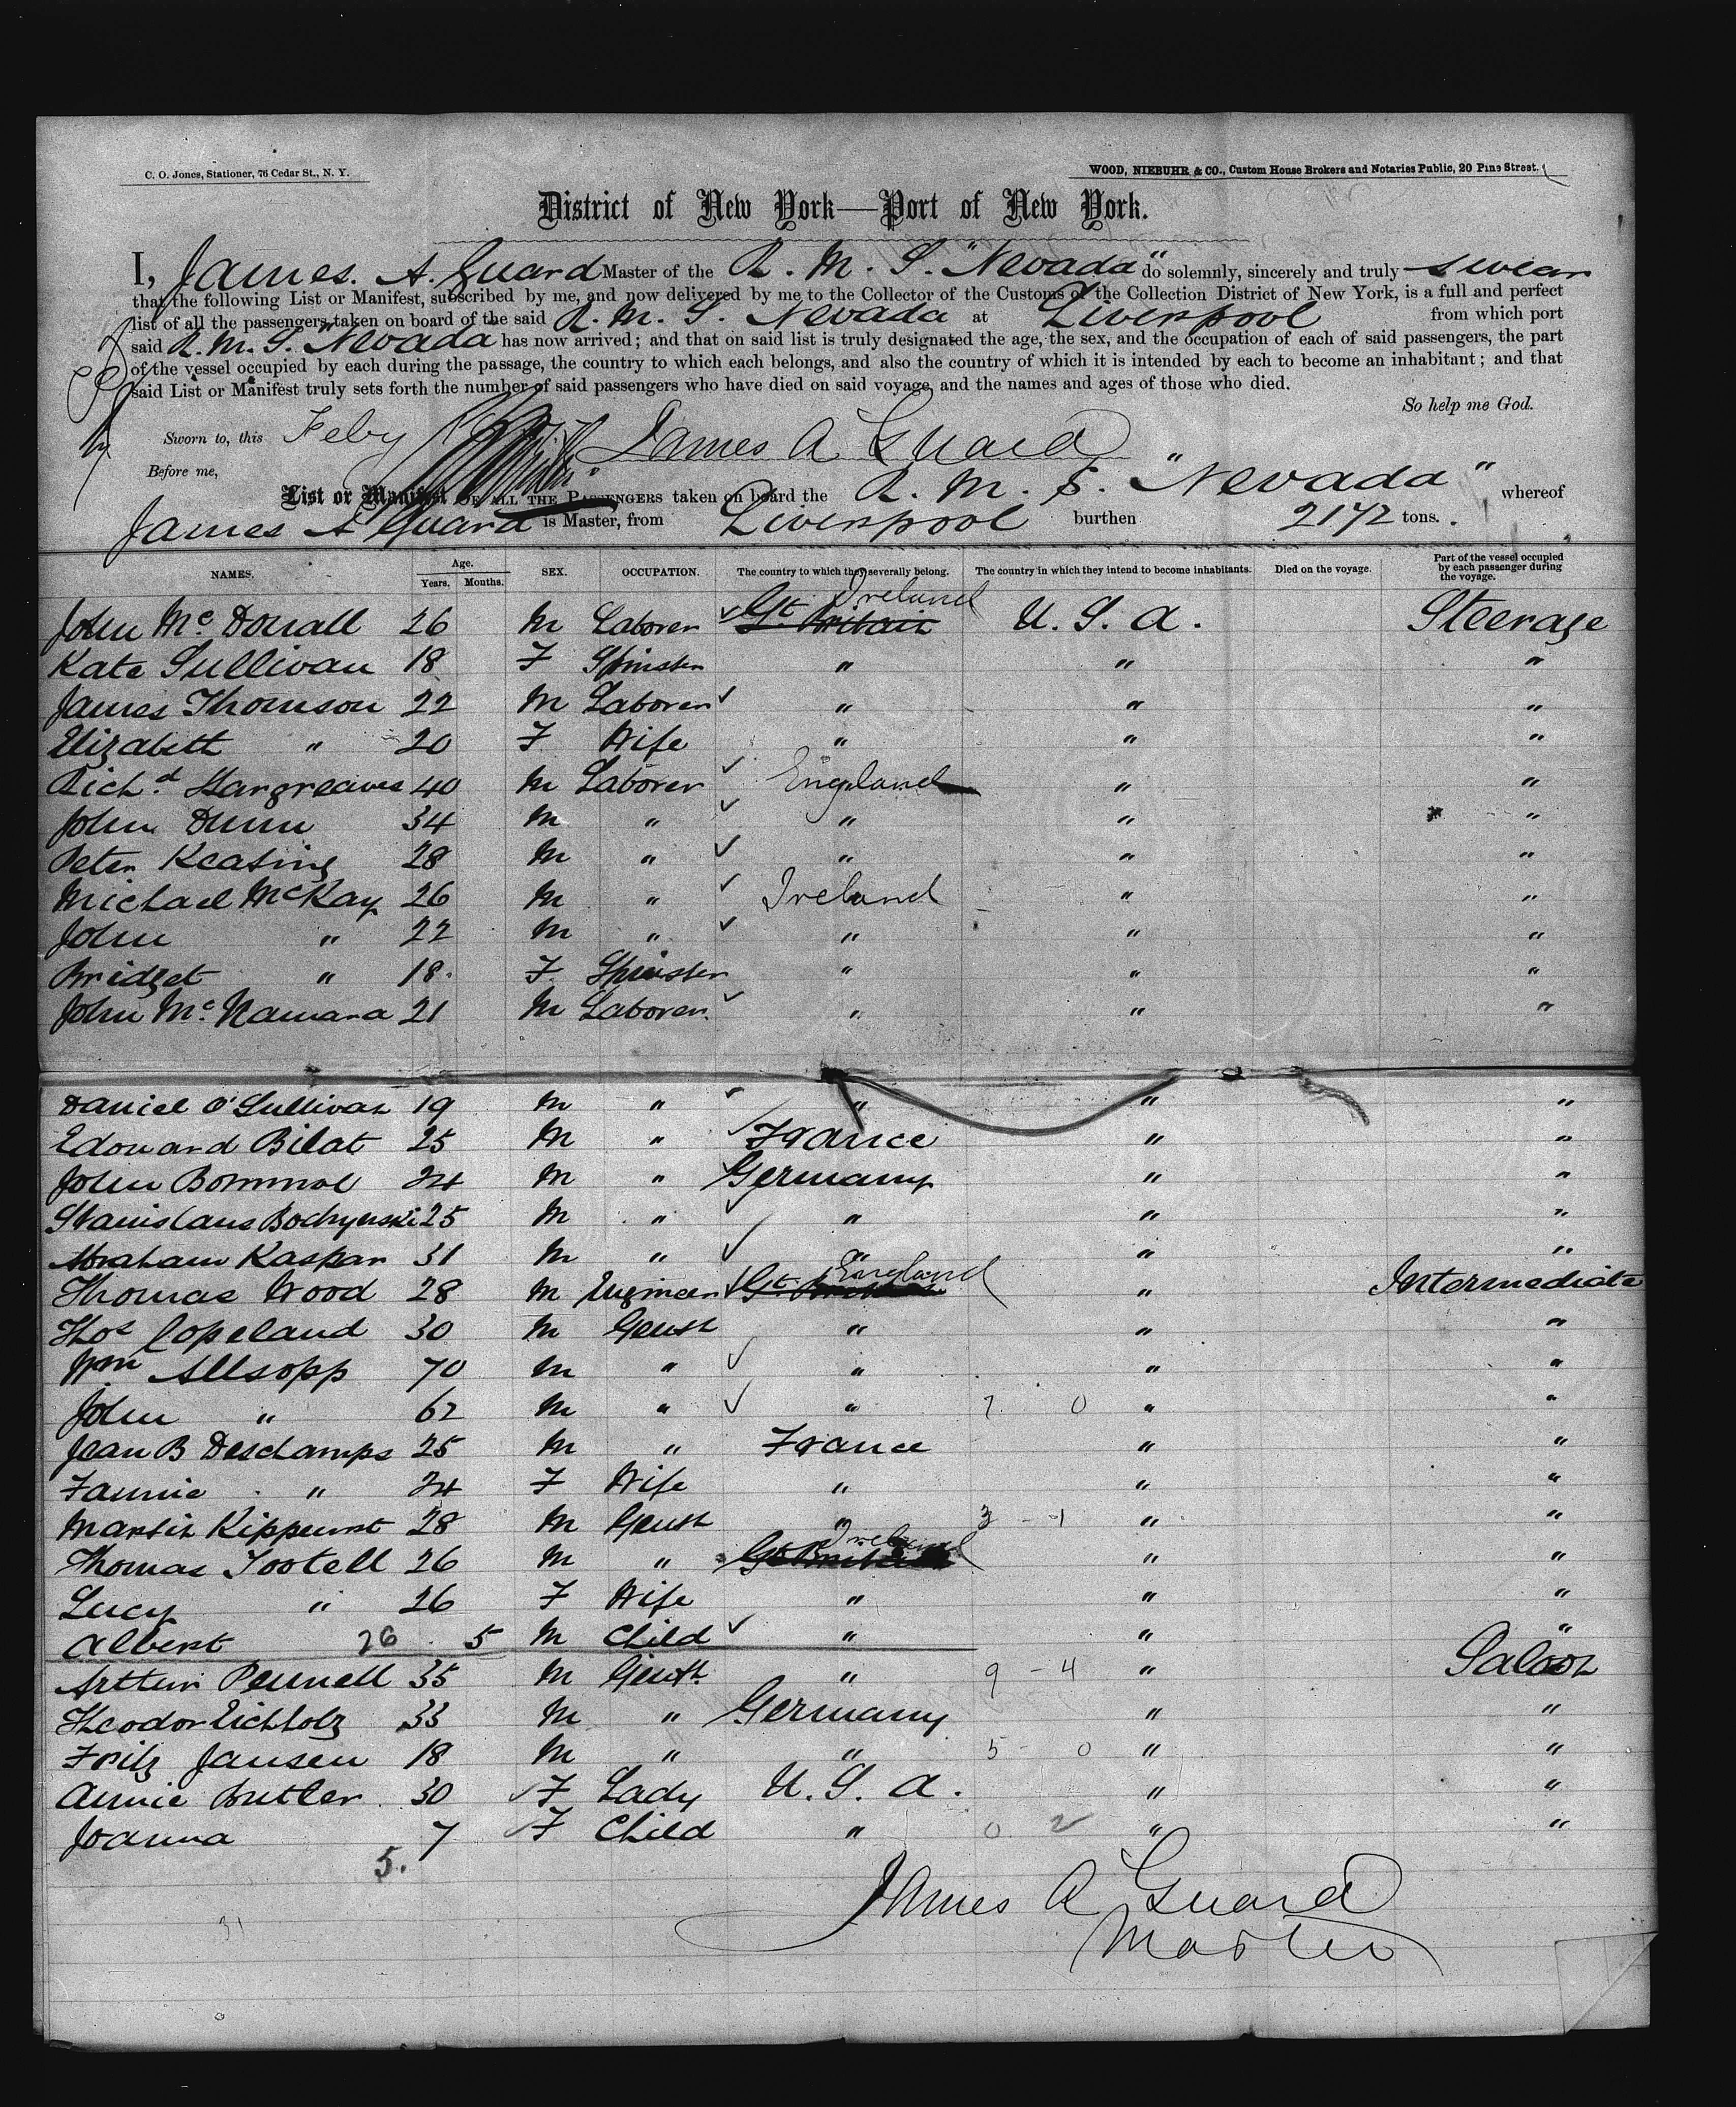 C. O. Jones, Stationer, 76 Cedar St., N. Y.
WOOD, NIEBUHR & CO., Custom House Brokers and Notaries Public, 20 Pine Street.
District of New York—Port of New York.
I, James. A. Guard Master of the R. M. S. "Nevada" do solemnly, sincerely and truly swear
that the following List or Manifest, subscribed by me, and now delivered by me to the Collector of the Customs of the Collection District of New York, is a full and perfect
list of all the passengers taken on board of the said R. M. S. Nevada at Liverpool from which port
said R. M. S. "Nevada has now arrived; and that on said list is truly designated the age, the sex, and the occupation of each of said passengers, the part
of the vessel occupied by each during the passage, the country to which each belongs, and also the country of which it is intended by each to become an inhabitant; and that
said List or Manifest truly sets forth the number of said passengers who have died on said voyage, and the names and ages of those who died.
So help me God.
Sworn to, this Feby James A Guard
Before me,
List or Manifest OF ALL THE PASSENGERS taken on board the R. M. S. "Nevada" whereof
James A Guard is Master, from Liverpool burthen 2172 tons.
NAMES. Age. Years. Months. SEX. OCCUPATION. The country to which they severally belong. The country in which they intend to become inhabitants. Died on the voyage. Part of the vessel occupied by each passenger during the voyage.
John Mc. Donall 26 M Laborer Gt Britain Ireland U. S. A. Steerage
Kate Sullivan 18 F Spinster " " "
James Thomson 22 M Laborer " " "
Elizabeth " 20 F Wife " " "
Richd. Hargreaves 40 M Laborer England " "
John Dunn 34 M " " " "
Peter Keating 28 M " " " "
Michael McKay 26 M " Ireland " "
John " 22 M " " " "
Bridget " 18 F Spinster " " "
John Mc. Namara 21 M Laborer " " "
Daniel O'Sullivan 19 M " " " "
Edouard Bilat 25 M " France " "
John Bommol 24 M " Germany " "
Stanislaus Bochynski 25 M " " " "
Abraham Kaspar 31 M " " " "
Thomas Wood 28 M Engineer Gt Britain England " Intermediate
Thos Copeland 30 M Gentn " " "
Wm Allsopp 70 M " " " "
John " 62 M " " 7 0 " "
Jean B Deschamps 25 M " France " "
Fannie " 24 F Wife " " "
Martin Kippenrst 28 M Gentn " 3 - 1 " "
Thomas Tootell 26 M " Gt Britain Ireland " "
Lucy " 26 F Wife " " "
Albert 26 5 M Child " " "
Arthur Pennell 35 M Gentn. " 9 - 4 " Saloon
Theodor Eichholz 33 M " Germany " "
Fritz Jansen 18 M " " 5 - 0 " "
Annie Butler 30 F Lady U. S. A. " "
Joanna 7 F Child " 0 2 " "
5.
31
James A Guard
Master